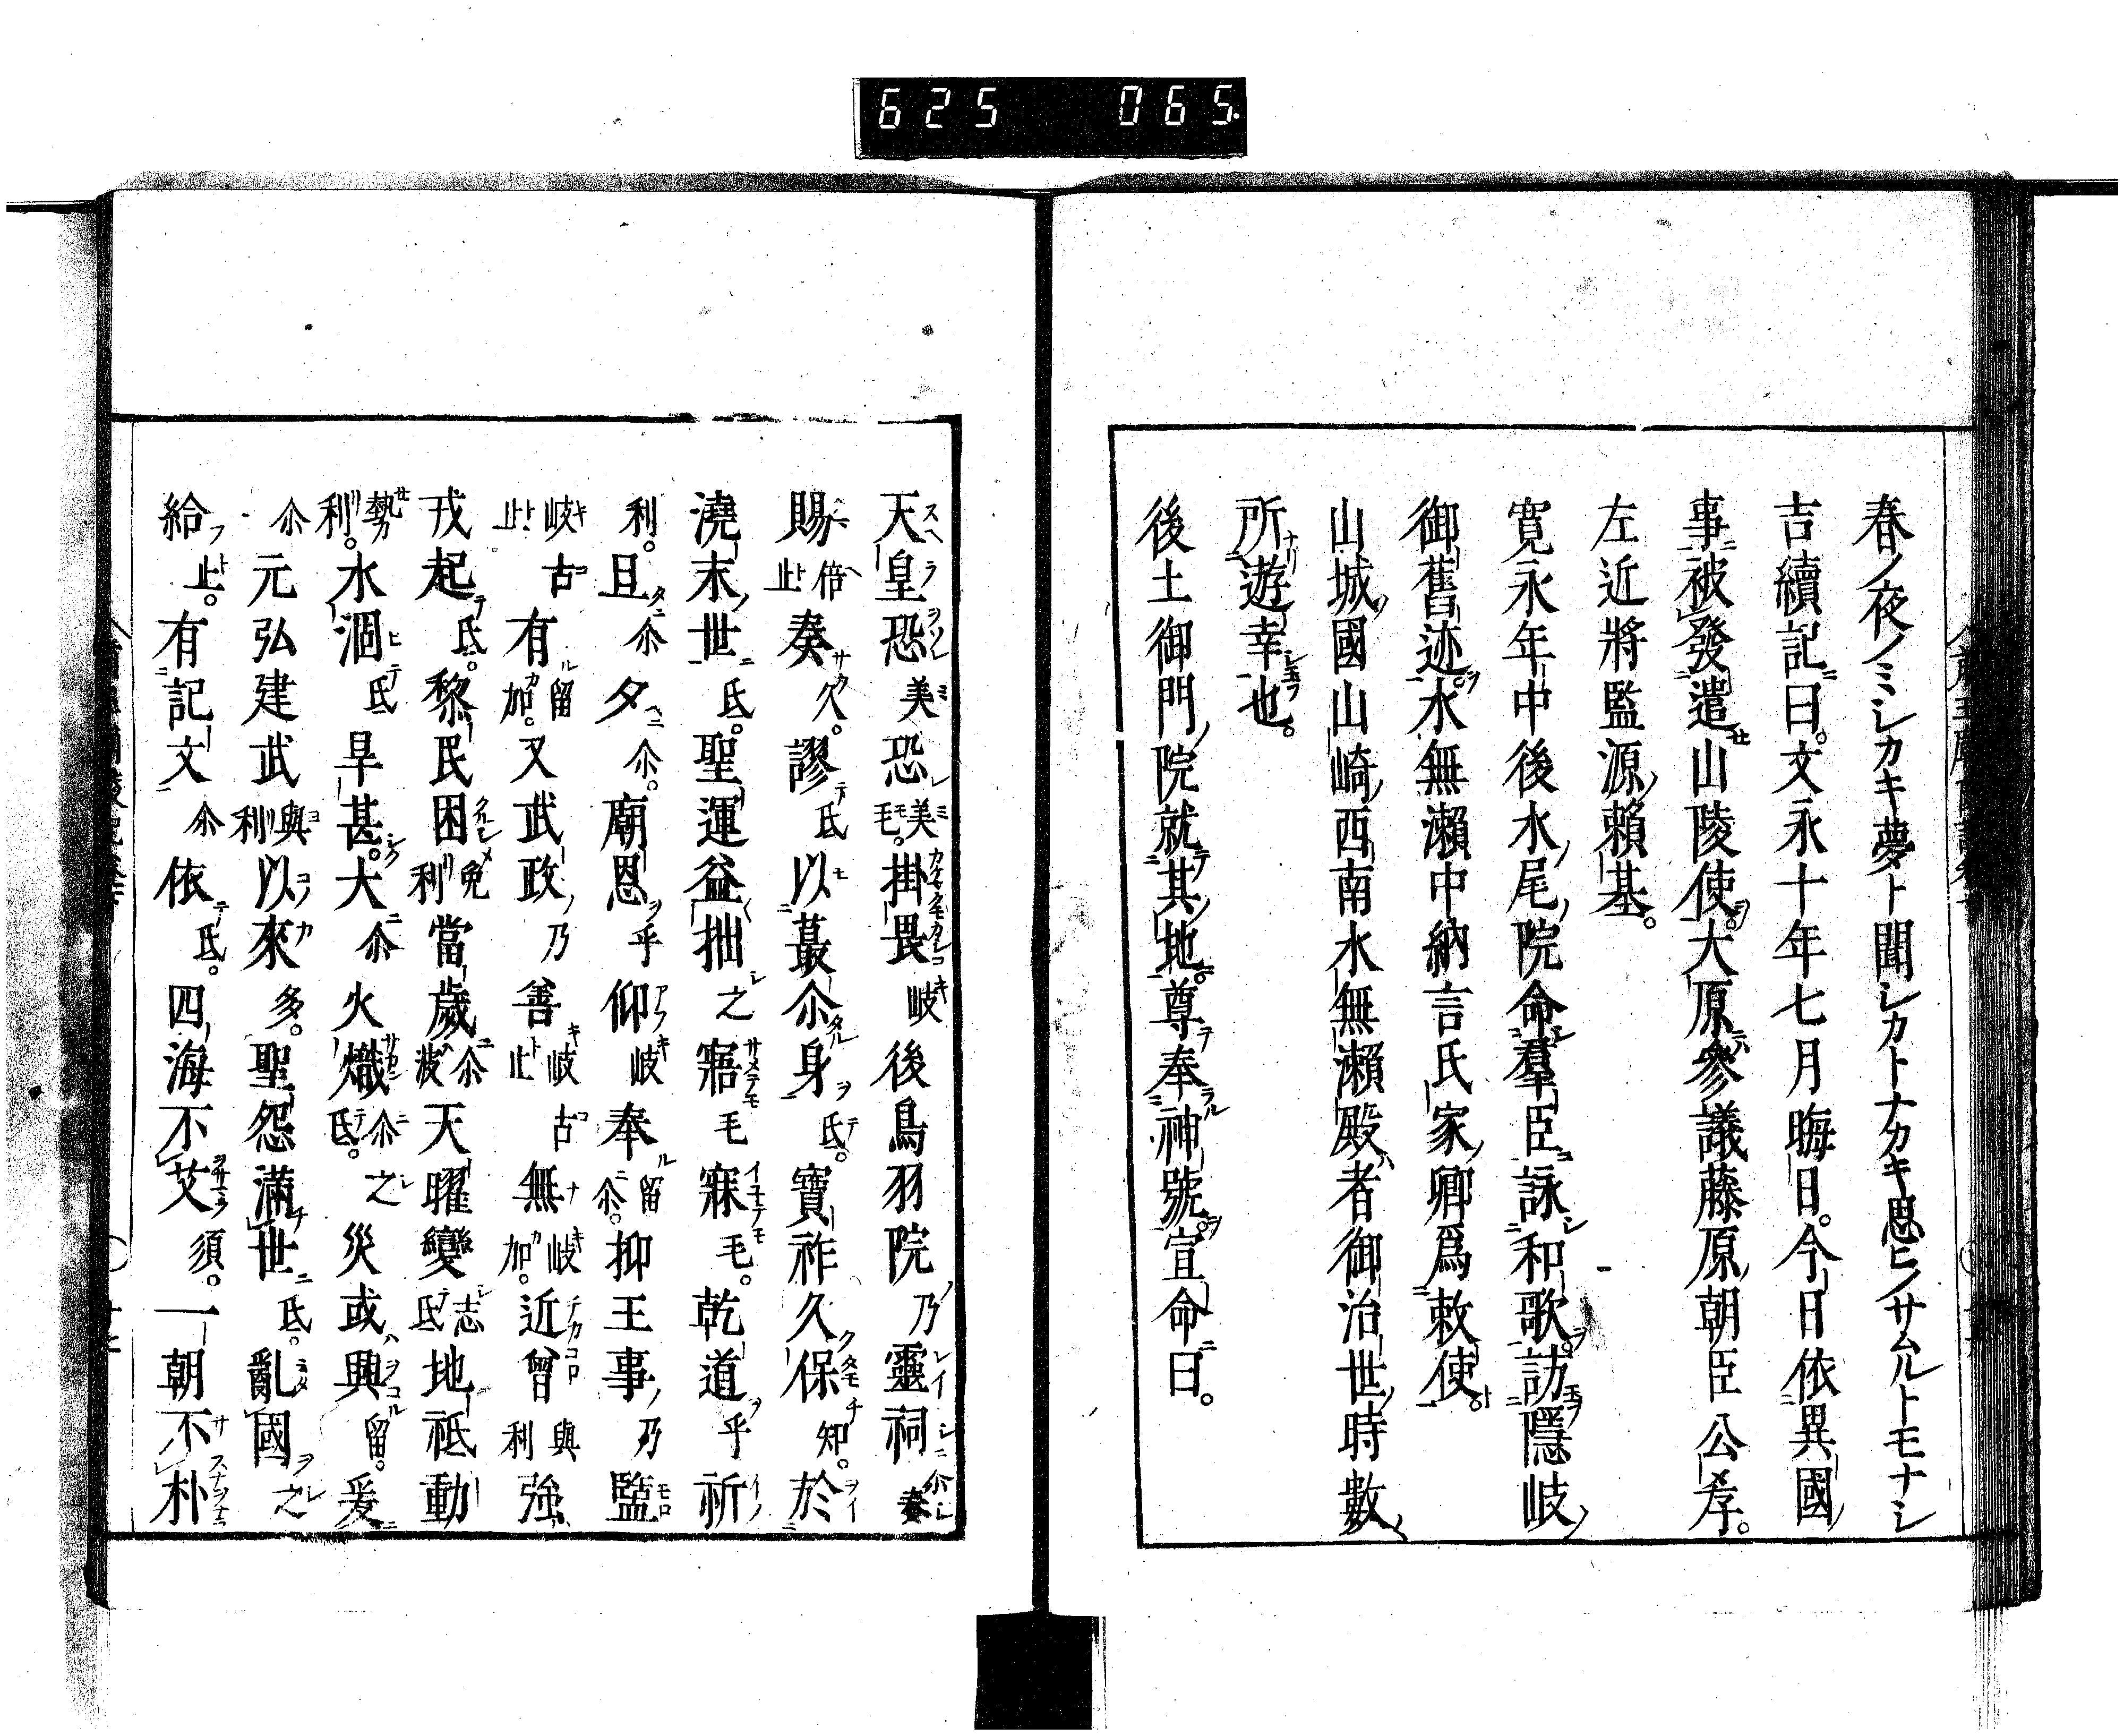 625 065
春ノ夜ノミシカキ夢ト聞シカトナカキ思ヒノサムルトモナシ
吉續記曰。文永十年七月晦日。今日依異國
事被發遣山陵使。大原參議藤原朝臣公孝。
左近將監源賴基。
寛永年中後水尾院命羣臣詠和歌訪隱岐
御舊迹。水無瀬中納言氏家卿爲敕使。
山城國山崎西南水無瀬殿者御治世時數
所遊幸也。
後土御門院就其地。尊奉神號。宣命曰。
天皇恐美恐美毛。掛畏岐後鳥羽院乃靈祠尓奏
賜倍止奏久。謬氐以蕞尓身氐。寶祚久保知。於
澆末世氐。聖運益拙之寤毛寐毛。乾道乎祈
利。且尓夕尓。廟恩乎仰岐奉留尓。抑王事乃監
岐古止有留加。又武政乃善岐古止無岐加。近曾與利強
戎起氐。黎民困免利當歲尓波天曜變志氐地祗動
勢利。水涸氐旱甚。大尓火熾尓氐。之災或興留。爰
尓元弘建武與利以來多。聖怨滿世氐。亂國之
給止。有記文尓依氐。四海不艾須。一朝不朴